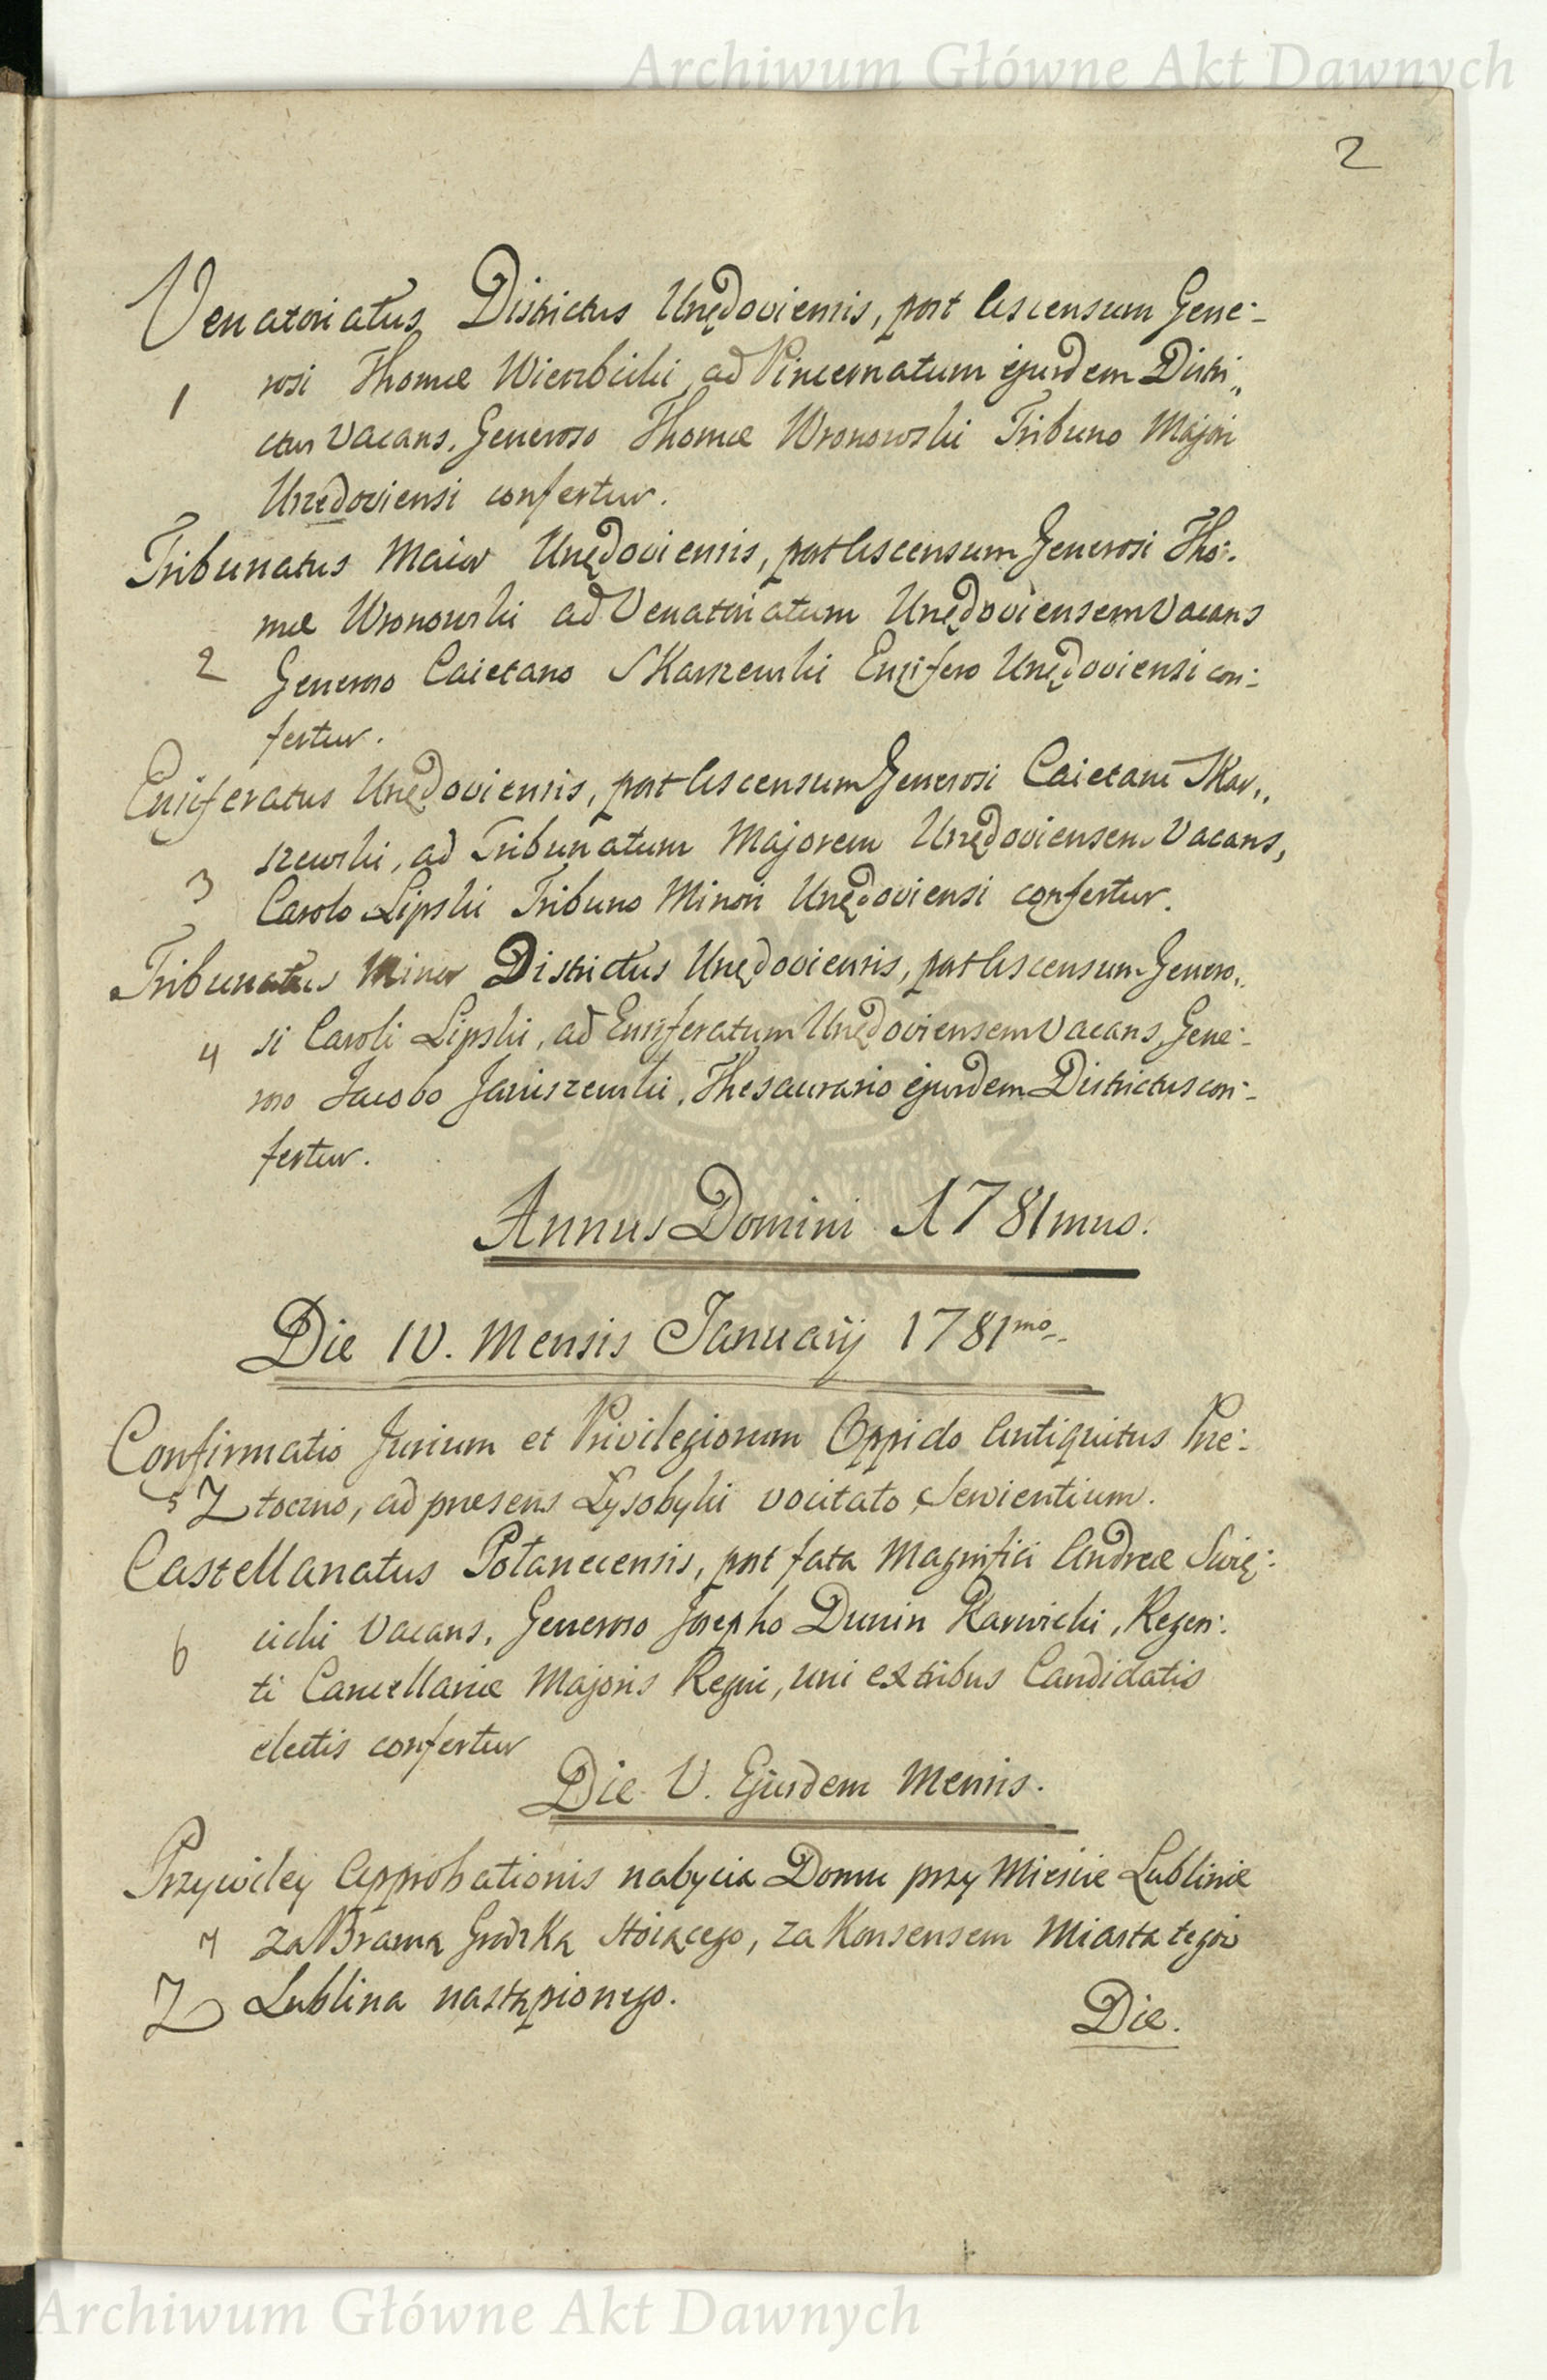 Archiwum Główne Akt Dawnych
2
Venatoriatus Districtus Urzędoviensis, post Ascensum Gene:-
rosi Thomæ Wierzbicki ad Pincernatum ejusdem Distri„
1
ctus Vacans, Generoso Thomæ Wronowski Tribuno Majori
Urzędoviensi confertur.
Tribunatus Maior Urzędoviensis, post Ascensum Generosi Tho:-
mæ Wronowski ad Venatoriatum Urzędoviensem Vacans
2 Generoso Caietano Skarszewski Ensifero Urzędoviensi con:-
fertur.
Ensiferatus Urzędoviensis, post Ascensum Generosi Caietani Skar„
szewski, ad Tribunatum Majorem Urzędoviensem Vacans,
3 Carolo Lipski Tribuno Minori Urzędoviensi confertur.
Tribunatus Minor Districtus Urzędoviensis, post Ascensum Genero„
4 si Caroli Lipski, ad Ensiferatum Urzędoviensem Vacans, Gene:-
roso Jacobo Januszewski, Thesaurario ejusdem Districtus con:-
fertur.
Annus Domini 1781mus.
Die IV. Mensis Januarÿ 1781mo
Confirmatio Jurium et Privilegiorum Oppido Antiquitus Prze:-
5 Z toczno, ad præsens Lysobyki vocitato, Servientium.
Castellanatus Połanecensis, post fata Magnifici Andreæ Swię:-
cicki Vacans, Generoso Josepho Dunin Karwicki, Regen:-
6
ti Cancellariæ Majoris Regni, uni ex tribus Candidatis
electis confertur
Die V. Ejusdem Mensis.
Przywiley Approbationis nabycia Domu przy Mieście Lublinie
7 za Bramą Grodzką stoiącego, za Konsensem Miasta tegoż
Z Lublina nastąpionego.
Die.
Archiwum Główne Akt Dawnych